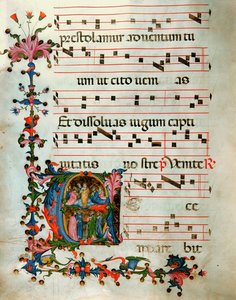 prestolamur adventum tu
um ut cito veni as
Et dissolvas iugum capti
vitatis nostre Venite R
ce
bit